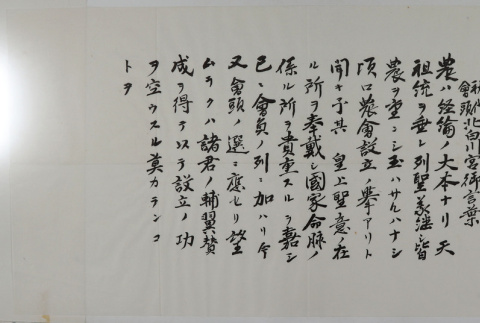 初代
會頭北白川宮御言葉
農ハ経綸ノ大本ナリ天
祖統ヲ垂レ列聖義継皆
農ヲ重ンシ玉ハサルハナシ
頃口農會設立ノ挙アリト
聞キ予其 皇上聖意ノ在
ル所ヲ奉戴シ國家命脈ノ
係ル所ヲ貴重スルヲ嘉シ
已ニ會員ノ列ニ加ハリ今
又會頭ノ選ニ應セリ望
ムラクハ諸君ノ輔翼賛
成ヲ得テ以テ設立ノ功
ヲ空ウスル莫カランコ
トヲ